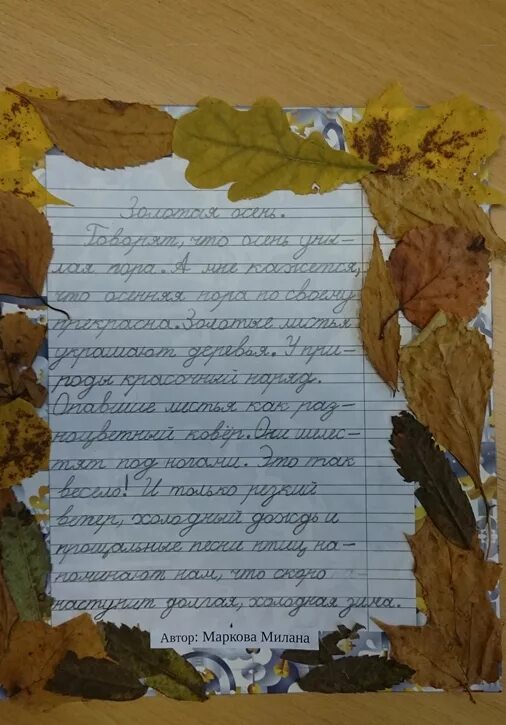 Золотая осень.
Говорят, что осень уны-
лая пора. А мне кажется,
что осенняя пора по своему
прекрасна. Золотые листья
украшают деревья. У при-
роды красочный наряд.
Опавшие листья как раз-
ноцветный ковёр. Они шелес-
тят под ногами. Это так
весело! И только резкий
ветер, холодный дождь и
прощальные песни птиц на-
поминают нам, что скоро
наступит долгая, холодная зима.
Автор: Маркова Милана